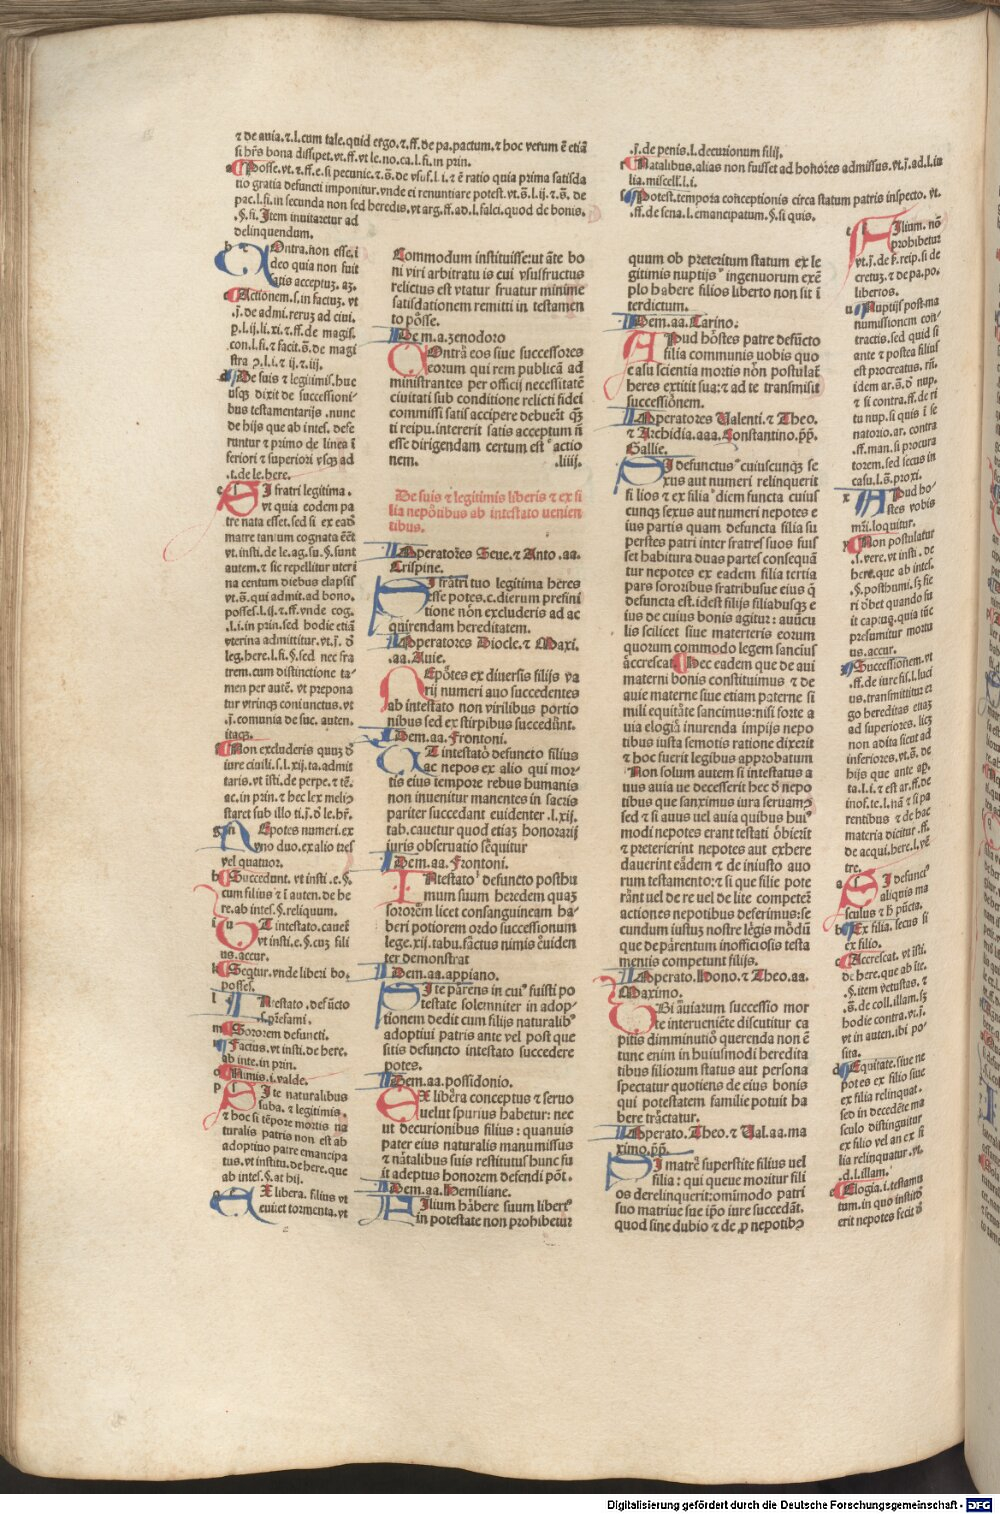 ⁊ de auia.⁊.l.cum tale.quid ergo.⁊.ff.de pa.pactum.⁊ hoc verum ē etiā
si hr̄s bona dissipet.vt.ff.vt le.no.ca.l.fi.in prin.
Posse.vt.⁊.ff.e.si pecunie.⁊.s̄.de vsuf.l.i.⁊ ē ratio quia prima satisda
tio gratia defuncti imponitur.vnde ei renuntiare potest.vt.s̄.l.ij.⁊.s̄.de
pac.l.fi.in secunda non sed heredis.vt arg.ff.ad.l.falci.quod de bonis.
.§.fi.Item inuitaretur ad
delinquendum.
Ontra.non esse.i
deo quia non fuit
satis acceptuꝫ.aꝫ.
Actionem.s.in factuꝫ.vt
.j̄.de admi.reruꝫ ad ciui.
p.l.ij.li.xi.⁊.ff.de magis.
con.l.fi.⁊ facit.s̄.de magi
stra ↄ.l.i.⁊ ij.⁊.iij.
De suis ⁊ legitimis.huc
usqꝫ dixit de successioni
bus testamentarijs.nunc
de hijs que ab intes.defe
runtur ⁊ primo de linea i
feriori ⁊ superiori vsqꝫ ad
.t.de le.here.
I fratri legitima.
vt quia eodem pa
tre nata esset.sed si ex eadē
matre tantum cognata eēt
vt.insti.de le.ag.su.§.sunt
autem.⁊ sic repellitur uteri
na centum diebus elapsis
vt.s̄.qui admit.ad bono.
posses.l.ij.⁊.ff.vnde cog.
.l.i.in prin.sed hodie etiā
vterina admittitur.vt.j̄.d̄
leg.here.l.fi.§.sed nec fra
trem.cum distinctione ta
men per autē.vt prepona
tur vtrinqꝫ coniunctus.vt
.j̄.comunia de suc.auten.
itaqꝫ.
Non excluderis quuꝫ d̄
iure ciuili.s.l.xij.ta.admit
taris.vt isti.de perpe.⁊ tē.
ac.in prin.⁊ hec lex meliꝰ
staret sub illo ti.j̄.d̄ le.hr̄.
Epotes numeri.ex
vno duo.ex alio tres
vel quatuor.
Succedunt.vt insti.e.§.
cum filius ⁊ i auten.de he
re.ab intes.§.reliquum.
T intestato.cauet
vt insti.e.§.cuꝫ fili
us.accur.
Seqtur.vnde liberi bo.
posses.
Ntestato.defūcto
.s.pr̄esami.
Sororem defuncti.
Factus.vt insti.de here.
ab inte.in prin.
Nimis.i.valde.
I te naturalibus
suba.⁊ legitimis.
⁊ hoc si tēpore mortis na
turalis patris non est ab
adoptiuo patre emancipa
tus.vt institu.de here.que
ab intes.§.at hij.
X libera.filius vt
eui.et tormenta.vt
Commodum instituisse:ut āte bo
ni viri arbitratu is cui vsusfructus
relictus est vtatur fruatur minime
satisdationem remitti in testamen
to posse.
Idem.a.zenodoro
Ontra eos siue successores
eorum qui rem publicā ad
ministrantes per officij necessitatē
ciuitati sub conditione relicti fidei
commissi satis accipere debuent qꝫ
ti reipu.intererit satis acceptum n̄
esse dirigendam certum est actio
nem. .liiij.
De suis ⁊ legitimis liberis ⁊ ex fi
lia nepotibus ab intestato uenien
tibus.
Imperatores Seue.⁊ Anto.aa.
Crispine.
I fratri tuo legitima heres
esse potes.c.dierum prefini
tione non excluderis ad ac
quirendam hereditatem.
Imperatores Diocle.⁊ Maxi.
.aa.Auie.
Epotes ex diuersis filijs va
rij numeri auo succedentes
ab intestato non virilibus portio
nibus sed ex stirpibus succedūnt.
Idem.aa.Frontoni.
T intestato defuncto filius
ac nepos ex alio qui mor
tis eius tempore rebus humanis
non inuenitur manentes in sacris
pariter succedant euidenter.l.xij.
tab.cauetur quod etiaꝫ honorarij
iuris obseruatio sequitur
Idem.aa.Frontoni.
Ntestato defuncto posthu
mum suum heredem quaꝫ
sororem licet consanguineam ha
beri potiorem ordo successionum
lege.xij.tabu.factus nimis euiden
ter demonstrat
Idem.aa.appiano.
I te parens in cuiꝰ fuisti po
testate solemniter in adop
tionem dedit cum filijs naturalibꝰ
adoptiui patris ante vel post que
sitis defuncto intestato succedere
potes.
Idem.aa.possidonio.
X libera conceptus ⁊ seruo
uelut spurius habetur: nec
ut decurionibus filius : quanuis
pater eius naturalis manumissus
⁊ natalibus suis restitutus hunc fu
it adeptus honorem defendi pōt.
Idem.aa.Hemiliane.
Ilium habere suum liberi
in potestate non prohibetur
.j̄.de penis.l.decurionum filij.
Natalibus.alias non fuisset ad honores admissus.vt.j̄.ad.l.iu
lia.miscell.l.i.
Potest.tempora conceptionis circa statum patris inspecto.vt.
.ff.de sena.l.emancipatum.§.si quis.
quum ob preteritum statum ex le
gitimis nuptijs ingenuorum exē
plo habere filios liberto non sit i
terdictum.
Idem.aa.Carino.
Pud hostes patre defūcto
filia communis uobis quo
e asu scientia mortis non postulat
heres extitit sua:⁊ ad te transmisit
successionem.
Imperatores Valenti.⁊ Theo.
⁊ Archidia.aaa.Constantino.pp̄.
Gallie.
I defunctus cuiuscunqꝫ se
xus aut numeri relinquerit
fi lios ⁊ ex filia diem functa cuius
cunqꝫ sexus aut numeri nepotes e
ius partis quam defuncta filia su
perstes patri inter fratres suos fuis
set habitura duas partes consequā
tur nepotes ex eadem filia tertia
pars sororibus fratribusue eius q̄
defuncta est.idest filijs filiabusqꝫ e
ius de cuius bonis agitur: auūcu
lis scilicet siue materteris eorum
quorum commodo legem sancius
accrescat Hec eadem que de aui
materni bonis constituimus ⁊ de
auie materne siue etiam paterne si
mili equitate sancimus:nisi forte a
uia elogia inurenda impijs nepo
tibus iusta semotis ratione dixerit
⁊ hoc fuerit legibus approbatum
Non solum autem si intestatus a
uus auia ue decesserit hec d̄ nepo
tibus que sanximus iura seruamꝰ
sed ⁊ si auus uel auia quibus huiꝰ
modi nepotes erant testati obierit
⁊ preterierint nepotes aut exhere
dauerint eadem ⁊ de iniusto auo
rum testamento:⁊ si que filie pote
rant uel de re uel de lite competer̄
actiones nepotibus deferimus:se
cundum iustuꝫ nostre legis modū
que de parentum inofficiosis testa
mentis competunt filijs.
Imperato.Hono.⁊ Theo.aa.
Maximo.
Bi auiarum successio mor
te interueniēte discutitur ca
pitis dimminutio querenda non ē
tunc enim in huiusmodi heredita
tibus filiorum status aut persona
spectatur quotiens de eius bonis
qui potestatem familie potuit ha
bere tractatur.
Imperato.Theo.⁊ Val.aa.ma
ximo.pp̄.
I matre superstite filius uel
filia : qui queue moritur fili
os derelinquerit:omimodo patri
suo matriue sue ip̄o iure succedāt.
quod sine dubio ⁊ de ꝓ nepotibꝰ
Ilium.nō
prohibetur
vt.j̄.de ē.reip.si de
cretuꝫ.⁊ de pa.po.
libertos.
Nuptijs post ma
numissionem con
tractis.sed quid si
ante ⁊ postea filius
est procreatus.rn̄.
idem ar.s̄.d̄ nup.
⁊ si contra.ff.de ri
tu nup.si quis i se
natorio.ar.contra
.ff.man.si procura
torem.sed secus in
casu.l.s̄.proxi.
Pud ho
stes vobis
mr̄i.loquitur.
Non postulatur
.s.vere.vt insti.de
here.que ab intes.
.§.posthumi.sꝫ fie
ri d̄bet quando fu
it captuꝰ.quia tūc
presumitur mortu
us.accur.
Successionem.vt
.ff.de iure fis.l.luci
us.transmittitur er
go hereditas etiaꝫ
ad superiores.licꝫ
non adita sicut ad
inferiores.vt.s̄.de
hijs que ante ap.
ta.l.i.⁊ est ar.ff.de
inof.te.l.nā ⁊ si pa
rentibus ⁊ de hac
materia dicitur.ff.
de acqui.here.l.vē
tre.
I defunct
aliquis ma
sculus ⁊ h̄ pūcta.
Ex filia.secus si
ex filio.
Accrescat.vt isti.
de here.que ab ite.
.§.item vetustas.⁊
.s̄.de coll.illam.sꝫ
hodie contra.vt.j̄.
vt in auten.ibi po
sita.
Equitate.siue ne
potes ex filio siue
ex filia relinquat.
sed in decedēte ma
sculo distinguitur
ex filio vel an ex fi
lia relinquatur.vt.
.d.l.illam.
Elogia.i.testamu
tum.in quo instito
erit nepotes fecit d̄
Digitalisierung gefördert durch die Deutsche Forschungsgemeinschaft - DFG